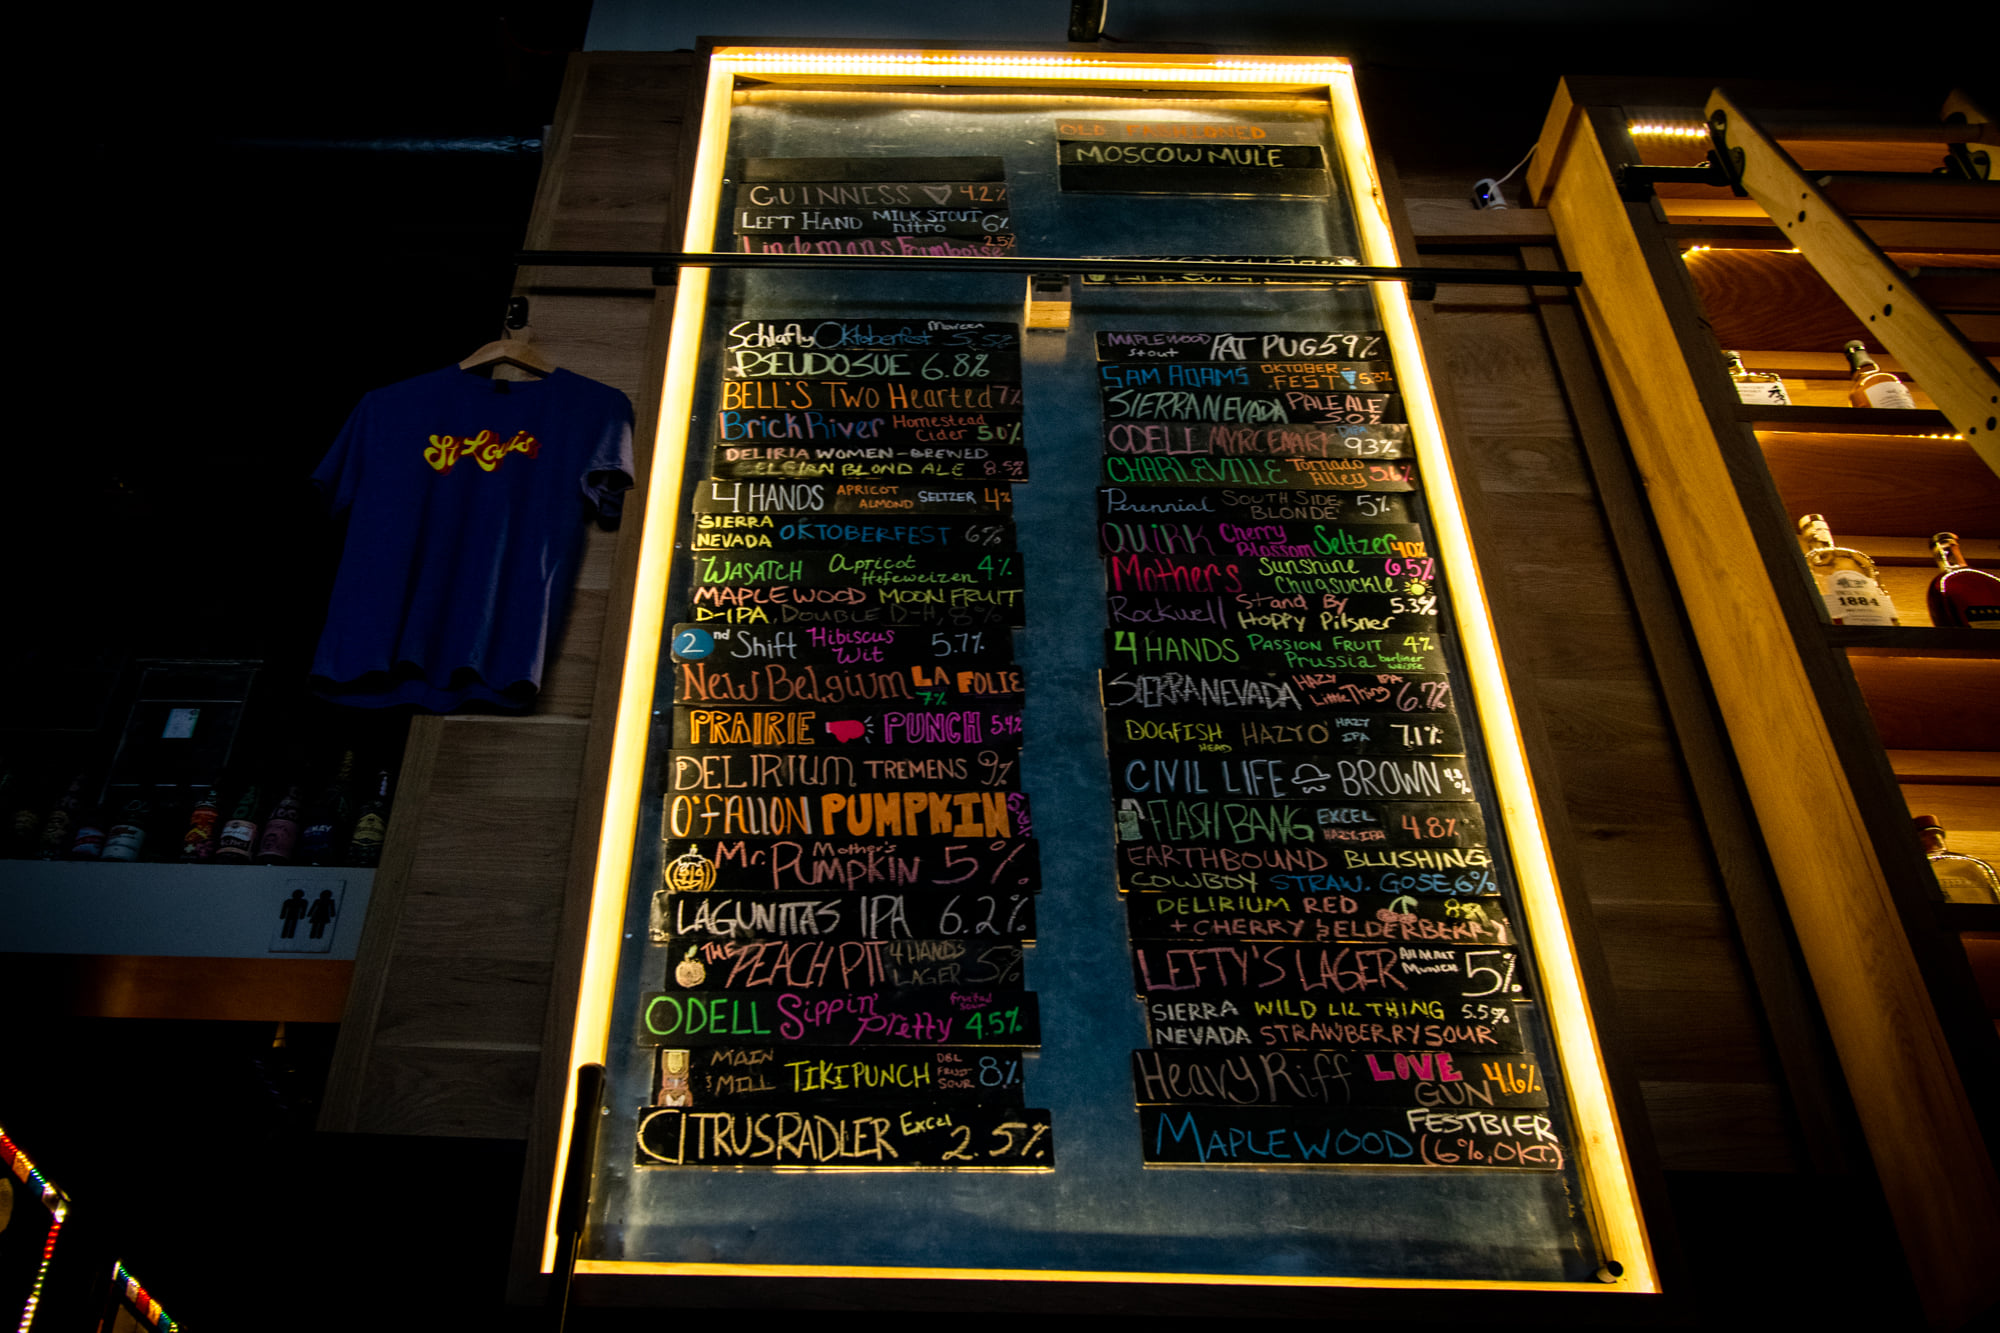 OLD FASHIONED
MOSCOW MULE
GUINNESS 4.2%
LEFT HAND MILK STOUT nitro 6%
Lindemans Framboise 2.5%
Schlafly Oktoberfest 5.5%
PSEUDOSUE 6.8%
BELL'S TWO Hearted 7%
Brick River Homestead Cider 5.0%
DELIRIA WOMEN-BREWED
BELGIAN BLOND ALE 8.5%
4 HANDS APRICOT ALMOND SELTZER 4%
SIERRA NEVADA OKTOBERFEST 6%
WASATCH Apricot Hefeweizen 4%
MAPLEWOOD MOONFRUIT
D-IPA, DOUBLE D-H, 8%
2nd Shift Hibiscus Wit 5.7%
New Belgium LA FOLIE 7%
PRAIRIE PUNCH 5.4%
DELIRIUM TREMENS 9%
O'FALLON PUMPKIN
Mother's
Mr. PUMPKIN 5%
LAGUNITAS IPA 6.2%
THE PEACH PIT 4 HANDS LAGER 5%
ODELL Sippin' Pretty fruited sour 4.5%
MAIN & MILL TIKI PUNCH DBL FRUIT SOUR 8%
CITRUS RADLER Excel 2.5%
MAPLEWOOD stout FAT PUG 5.9%
SAM ADAMS OKTOBER FEST 5.3%
SIERRA NEVADA PALE ALE 5.0%
ODELL MYRCENARY DIPA 9.3%
CHARLEVILLE Tornado Alley 5.6%
Perennial SOUTH SIDE BLONDE 5%
QUIRK Cherry Blossom Seltzer 4.0%
Mothers Sunshine Chugsuckle 6.5%
Rockwell Stand By Hoppy Pilsner 5.3%
4 HANDS PASSION FRUIT Prussia berliner weisse 4%
SIERRA NEVADA HAZY Little Thing IPA 6.7%
DOGFISH HEAD HAZY O' HAZY IPA 7.1%
CIVIL LIFE BROWN 4.8%
FLASH BANG EXCEL HAZY IPA 4.8%
EARTHBOUND BLUSHING
COWBOY STRAW. GOSE, 6%
DELIRIUM RED 8%
+ CHERRY & ELDERBERRY
LEFTY'S LAGER Alt Malt Munich 5%
SIERRA NEVADA WILD LIL THING STRAWBERRY SOUR 5.5%
Heavy Riff LOVE GUN 4.6%
MAPLEWOOD FESTBIER (6%, OKT.)
St Louis
1884